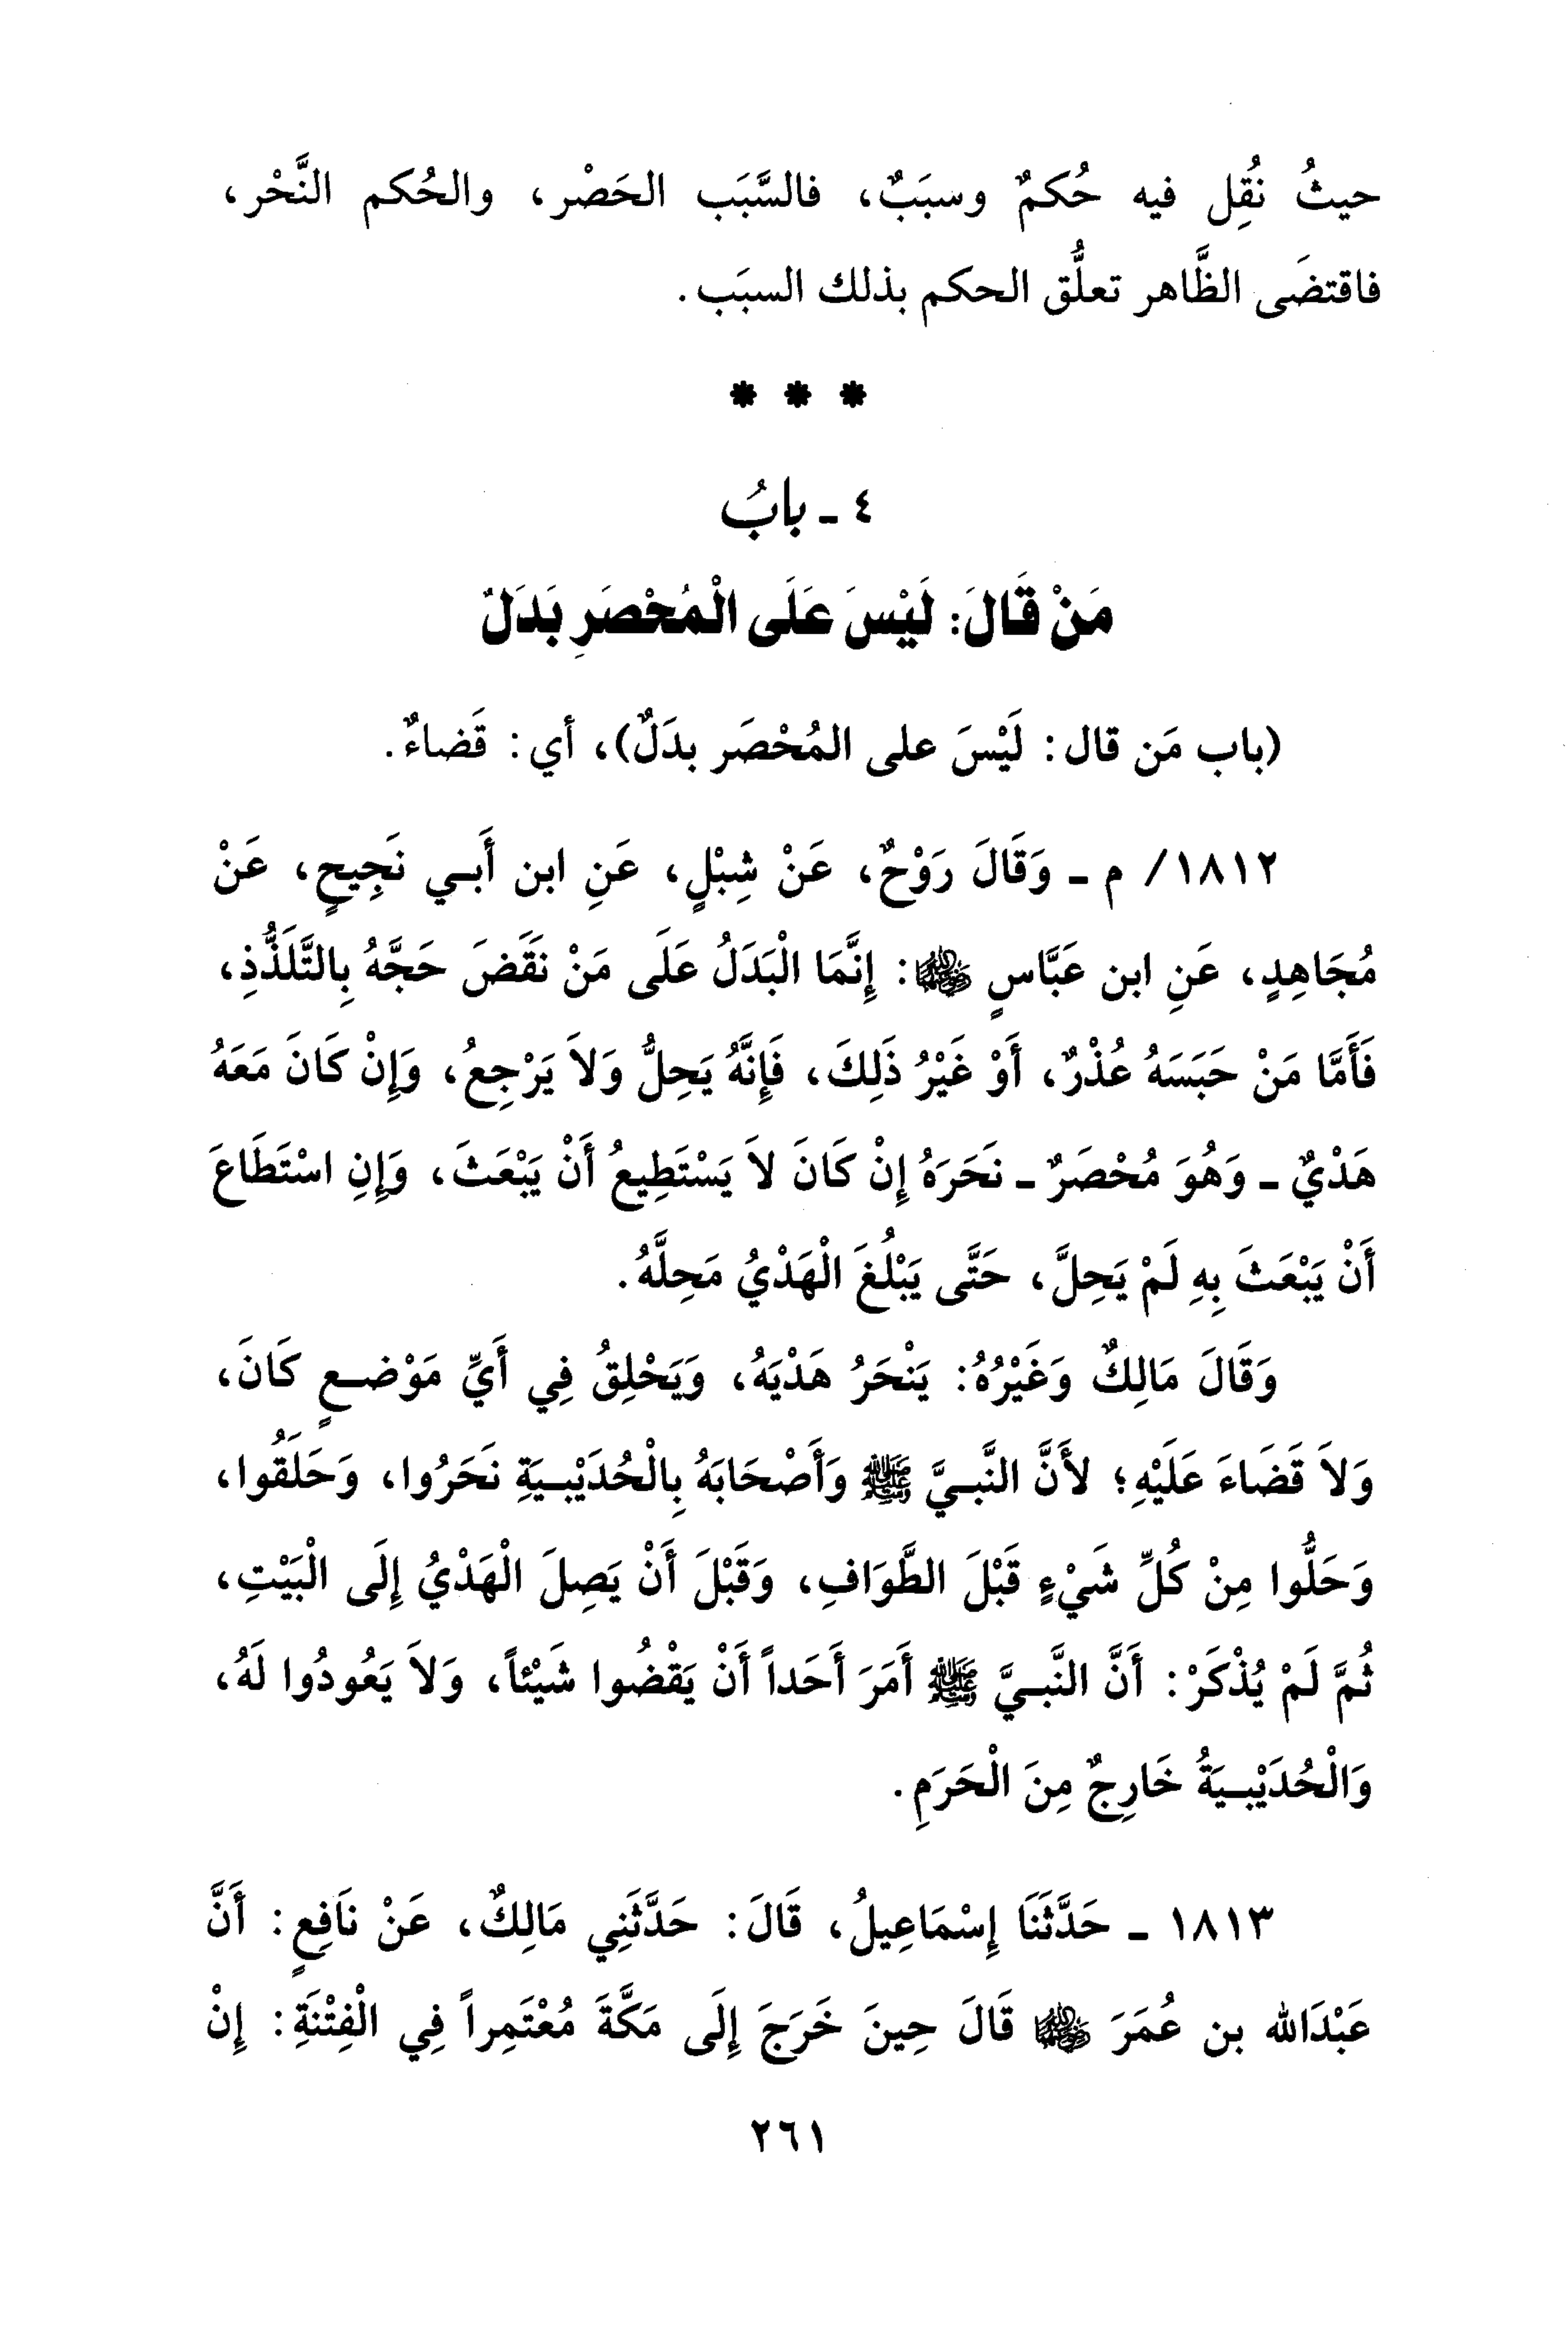 حيثُ نُقِل فيه حُكمٌ وسبَبٌ، فالسَّبَب الحَصْر، والحُكم النَّحْر،
فاقتضَى الظَّاهر تعلُّق الحكم بذلك السبَب.
* * *
٤ ـ بابُ
مَنْ قَالَ: لَيْسَ عَلَى الْمُحْصَرِ بَدَلٌ
(باب مَن قال: لَيْسَ على المُحْصَر بدَلٌ)، أي: قَضاءٌ.
١٨١٢/ م ـ وَقَالَ رَوْحٌ، عَنْ شِبْلٍ، عَنِ ابن أَبي نَجِيحٍ، عَنْ
مُجَاهِدٍ، عَنِ ابن عَبَّاسٍ رضي الله عنهما: إِنَّمَا الْبَدَلُ عَلَى مَنْ نَقَضَ حَجَّهُ بِالتَّلَذُّذِ،
فَأَمَّا مَنْ حَبَسَهُ عُذْرٌ، أَوْ غَيْرُ ذَلِكَ، فَإِنَّهُ يَحِلُّ وَلاَ يَرْجِعُ، وَإِنْ كَانَ مَعَهُ
هَدْيٌ ـ وَهُوَ مُحْصَرٌ ـ نَحَرَهُ إِنْ كَانَ لاَ يَسْتَطِيعُ أَنْ يَبْعَثَ، وَإِنِ اسْتَطَاعَ
أَنْ يَبْعَثَ بِهِ لَمْ يَحِلَّ، حَتَّى يَبْلُغَ الْهَدْيُ مَحِلَّهُ.
وَقَالَ مَالِكٌ وَغَيْرُهُ: يَنْحَرُ هَدْيَهُ، وَيَحْلِقُ فِي أَيِّ مَوْضعٍ كَانَ،
وَلاَ قَضَاءَ عَلَيْهِ؛ لأَنَّ النَّبيَّ ﷺ وَأَصْحَابَهُ بِالْحُدَيْبيَةِ نَحَرُوا، وَحَلَقُوا،
وَحَلُّوا مِنْ كُلِّ شَيْءٍ قَبْلَ الطَّوَافِ، وَقَبْلَ أَنْ يَصِلَ الْهَدْيُ إِلَى الْبَيْتِ،
ثُمَّ لَمْ يُذْكَرْ: أَنَّ النَّبيَّ ﷺ أَمَرَ أَحَداً أَنْ يَقْضُوا شَيْئاً، وَلاَ يَعُودُوا لَهُ،
وَالْحُدَيْبيَةُ خَارِجٌ مِنَ الْحَرَمِ.
١٨١٣ ـ حَدَّثَنَا إِسْمَاعِيلُ، قَالَ: حَدَّثَنِي مَالِكٌ، عَنْ نَافِعٍ: أَنَّ
عَبْدَالله بن عُمَرَ رضي الله عنهما قَالَ حِينَ خَرَجَ إِلَى مَكَّةَ مُعْتَمِراً فِي الْفِتْنَةِ: إِنْ
٢٦١